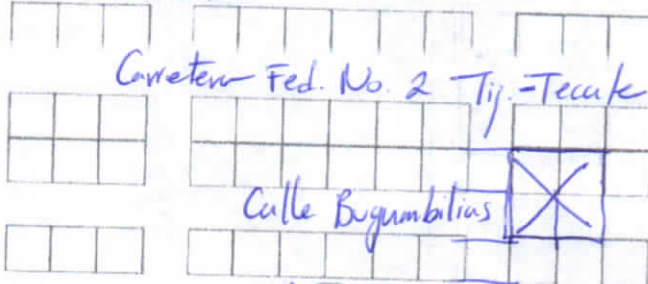 Carretera Fed. No. 2 Tij.-Tecate
Calle Bugumbilias